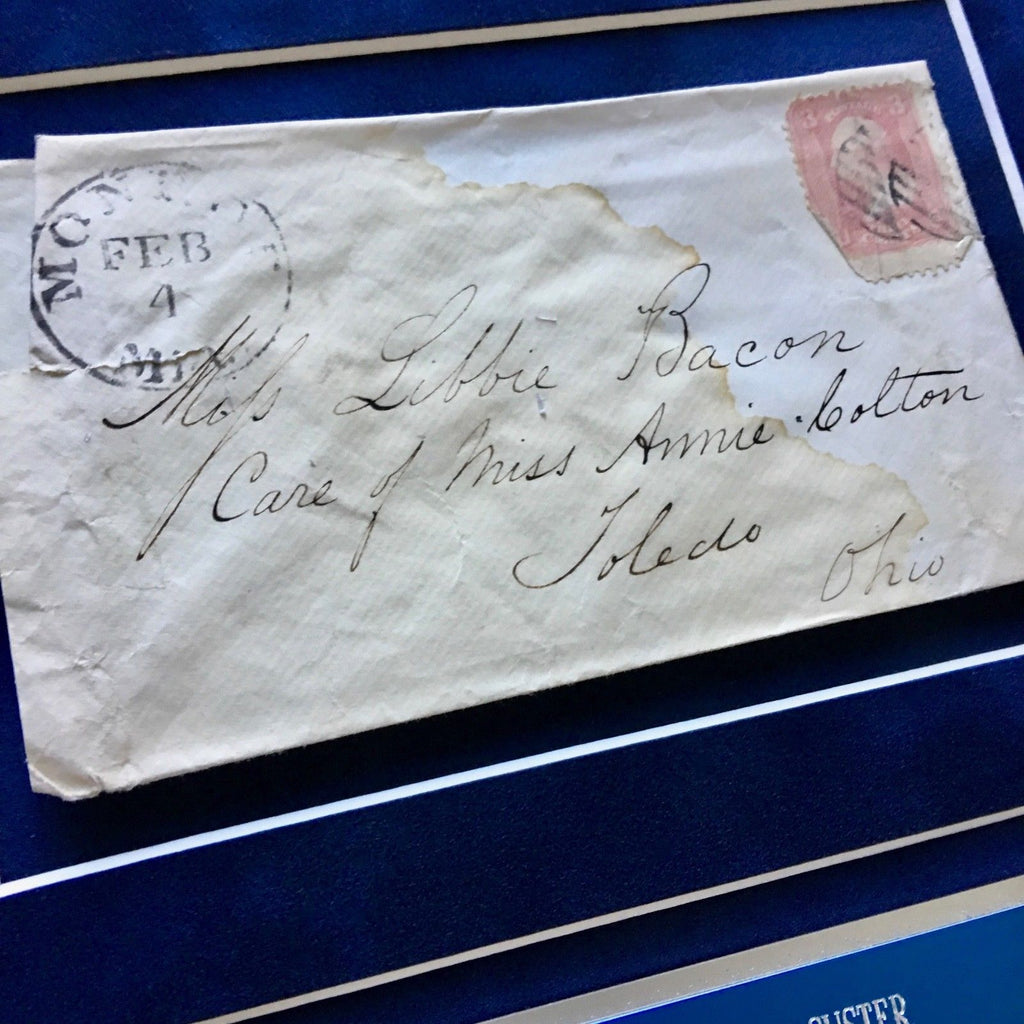 MONRO
FEB
4
Miss Libbie Bacon
Care of Miss Annie Colton
Toledo Ohio
CUSTER